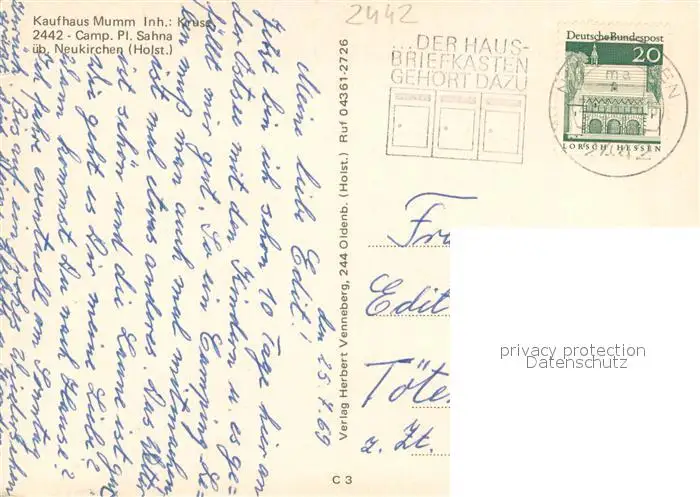 2442
Kaufhaus Mumm Inh.: Kruse
2442 - Camp. Pl. Sahna
üb. Neukirchen (Holst.)
...DER HAUS-
BRIEFKASTEN
GEHÖRT DAZU
Deutsche Bundespost
20
LORSCH HESSEN
den 25.7.69
Meine liebe Edit!
Jetzt bin ich schon 10 Tage hier an
der Ostsee mit den Kindern u. es ge=
fällt mir gut. So ein Camping Le=
ben muß man auch mal mitmachen
ist mal etwas anderes. Das Wetter
ist schön und die Laune ist gut
Wie geht es Dir meine Liebe?
Wann kommst Du nach Hause?
Ich fahre eventuell am Sonntag
Verlag Herbert Venneberg, 244 Oldenb. (Holst.) Ruf 04361-2726
C 3
Edit
z. Zt.
privacy protection
Datenschutz